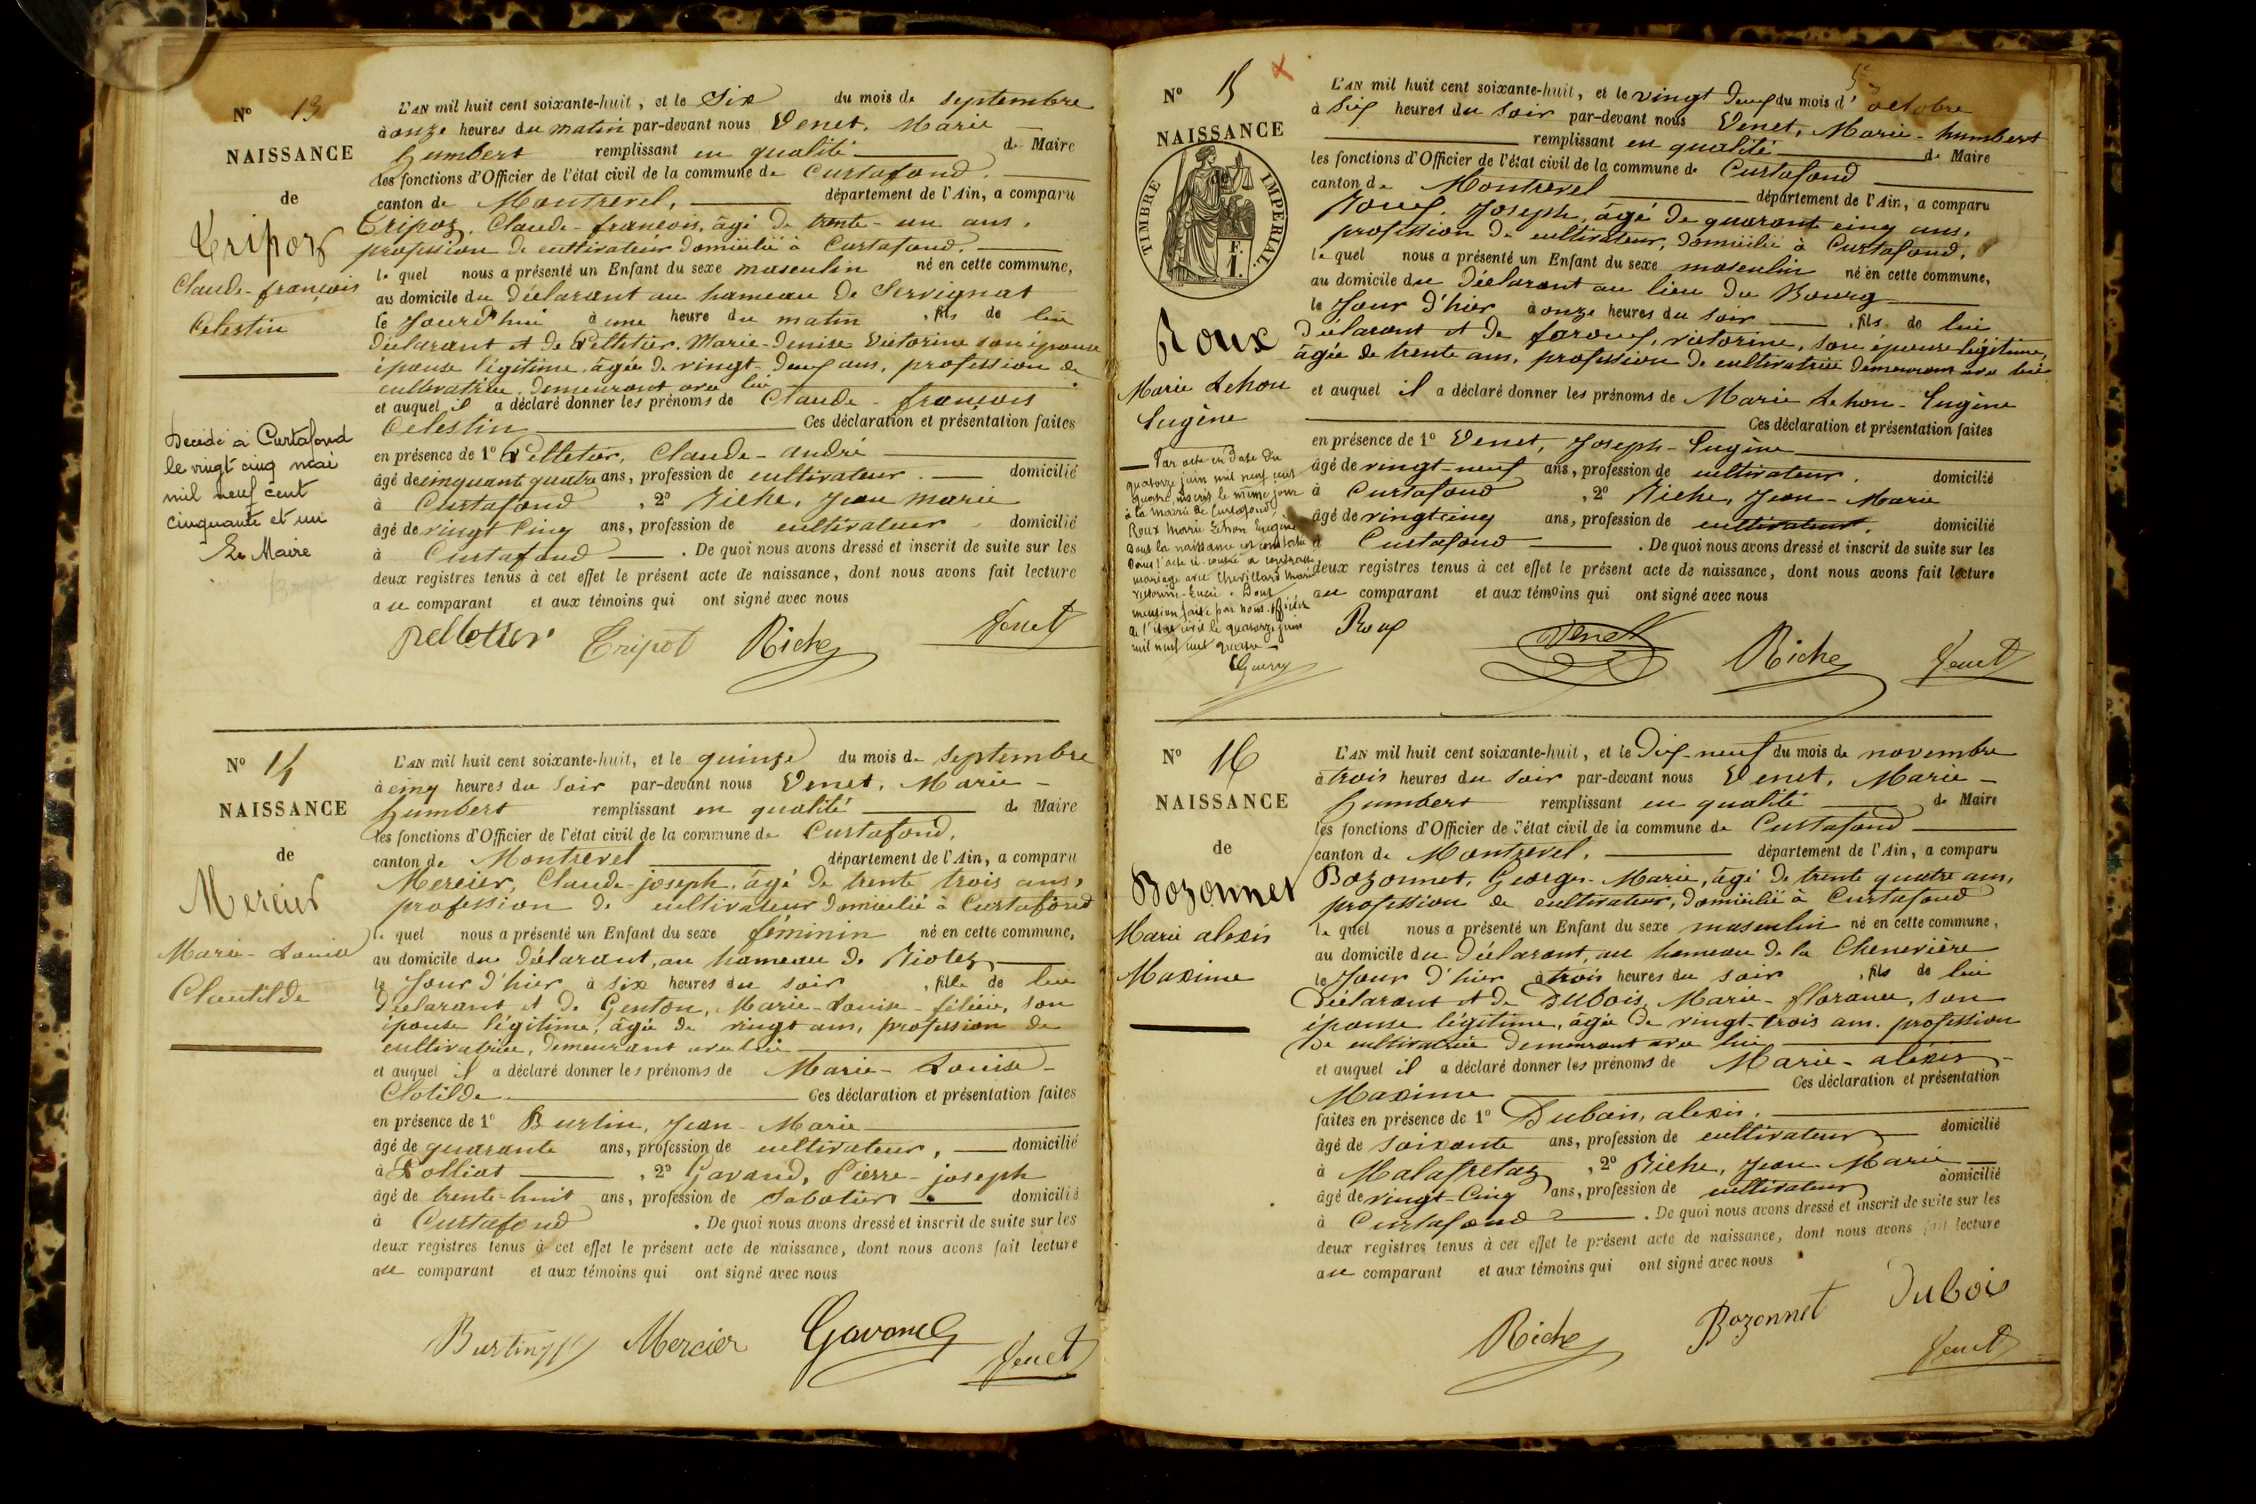 Nº 13
NAISSANCE
de
Tripoz
Claude-françois
Celestin
Décédé à Curtafond
le vingt cinq mai
mil neuf cent
cinquante et un
Le Maire
L'AN mil huit cent soixante-huit, et le Six du mois de septembre
à onze heures du matin par-devant nous Venet, Marie
humbert remplissant en qualité de Maire
les fonctions d'Officier de l'état civil de la commune de Curtafond.
canton de Montrevel, département de l'Ain, a comparu
Tripoz, Claude-françois, âgé de trente-un ans,
profession de cultivateur domicilié à Curtafond.
le quel nous a présenté un Enfant du sexe masculin né en cette commune,
au domicile du déclarant au hameau de Servignat
le Jourd'hui à une heure du matin, fils de lui
déclarant et de Pelletier, Marie-Denise Victorine son épouse
épouse légitime, âgée de vingt-deux ans, profession de
cultivatrice, demeurant avec lui
et auquel il a déclaré donner les prénoms de Claude-françois
Celestin Ces déclaration et présentation faites
en présence de 1º Pelletier, Claude-andré
âgé de cinquant quatre ans, profession de cultivateur. domicilié
à Curtafond, 2º Riche, Jean Marie
âgé de vingt Cinq ans, profession de cultivateur domicilié
à Curtafond. De quoi nous avons dressé et inscrit de suite sur les
deux registres tenus à cet effet le présent acte de naissance, dont nous avons fait lecture
au comparant et aux témoins qui ont signé avec nous
Pelletier Tripot Riche Venet
Nº 14
NAISSANCE
de
Mercier
Marie-Louise
Clautilde
L'AN mil huit cent soixante-huit, et le quinze du mois de septembre
à cinq heures du Soir par-devant nous Venet, Marie-
humbert remplissant en qualité de Maire
les fonctions d'Officier de l'état civil de la commune de Curtafond.
canton de Montrevel département de l'Ain, a comparu
Mercier, Claude-joseph, âgé de trente trois ans,
profession de cultivateur domicilié à Curtafond
le quel nous a présenté un Enfant du sexe féminin né en cette commune,
au domicile du déclarant, au hameau de Riotez
le Jour d'hier à six heures du soir, fille de lui
déclarant et de Genton, Marie-Louise-félicie, son
épouse légitime, âgée de vingt ans, profession de
cultivatrice, demeurant avec lui
et auquel il a déclaré donner les prénoms de Marie-Louise-
Clotilde Ces déclaration et présentation faites
en présence de 1º Burtin, Jean-Marie
âgé de quarante ans, profession de cultivateur, domicilié
à Polliat, 2º Gavand, Pierre-joseph
âgé de trente-huit ans, profession de Sabotier domicilié
à Curtafond. De quoi nous avons dressé et inscrit de suite sur les
deux registres tenus à cet effet le présent acte de naissance, dont nous avons fait lecture
au comparant et aux témoins qui ont signé avec nous
Burtin Mercier Gavand Venet
Nº 15
NAISSANCE
TIMBRE IMPÉRIAL
F.
1.
Roux
Marie Lehon
Eugène
Par acte en date du
quatorze juin mil neuf cent
quatre, inscrit le même jour
à la mairie de Curtafond,
Roux Marie Lehon Eugène
dont la naissance est constatée
dans l'acte ci-contre a contracté
mariage avec Chevillard Marie
victorine-Lucie. Dont
mention faite par nous officier
de l'état civil le quatorze juin
mil neuf cent quatre
L'AN mil huit cent soixante-huit, et le vingt deux du mois d'octobre
à Six heures du soir par-devant nous Venet, Marie-humbert
remplissant en qualité de Maire
les fonctions d'Officier de l'état civil de la commune de Curtafond
canton de Montrevel département de l'Ain, a comparu
Roux, Joseph, âgé de quarant cinq ans,
profession de cultivateur, domicilié à Curtafond,
le quel nous a présenté un Enfant du sexe masculin né en cette commune,
au domicile du déclarant au lieu du Bourg
le Jour d'hier à onze heures du soir, fils de lui
déclarant et de faroux, victorine, son épouse légitime,
âgée de trente ans, profession de cultivatrice demeurant avec lui
et auquel il a déclaré donner les prénoms de Marie Lehon-Eugène
Ces déclaration et présentation faites
en présence de 1º Venet, Joseph-Eugène
âgé de vingt-neuf ans, profession de cultivateur. domicilié
à Curtafond, 2º Riche, Jean-Marie
âgé de vingtcinq ans, profession de cultivateur. domicilié
à Curtafond. De quoi nous avons dressé et inscrit de suite sur les
deux registres tenus à cet effet le présent acte de naissance, dont nous avons fait lecture
au comparant et aux témoins qui ont signé avec nous
Roux Venet Riche Venet
Nº 16
NAISSANCE
de
Bozonnet
Marie alexis
Maxime
L'AN mil huit cent soixante-huit, et le Dix-neuf du mois de novembre
à trois heures du soir par-devant nous Venet, Marie-
humbert remplissant en qualité de Maire
les fonctions d'Officier de l'état civil de la commune de Curtafond
canton de Montrevel. département de l'Ain, a comparu
Bozonnet, Georges-Marie, âgé de trente quatre ans,
profession de cultivateur, domicilié à Curtafond
le quel nous a présenté un Enfant du sexe masculin né en cette commune,
au domicile du déclarant, au hameau de la Chenevière
le Jour d'hier à trois heures du soir, fils de lui
Déclarant et de Dubois, Marie-florance, son
épouse légitime, âgée de vingt-trois ans. profession
de cultivatrice demeurant avec lui
et auquel il a déclaré donner les prénoms de Marie-alexis-
Maxime Ces déclaration et présentation
faites en présence de 1º Dubois, alexis.
âgé de soixante ans, profession de cultivateur domicilié
à Malafretaz, 2º Riche, Jean-Marie
âgé de vingt-Cinq ans, profession de cultivateur domicilié
à Curtafond. De quoi nous avons dressé et inscrit de suite sur les
deux registres tenus à cet effet le présent acte de naissance, dont nous avons fait lecture
au comparant et aux témoins qui ont signé avec nous
Riche Bozonnet Dubois
Venet